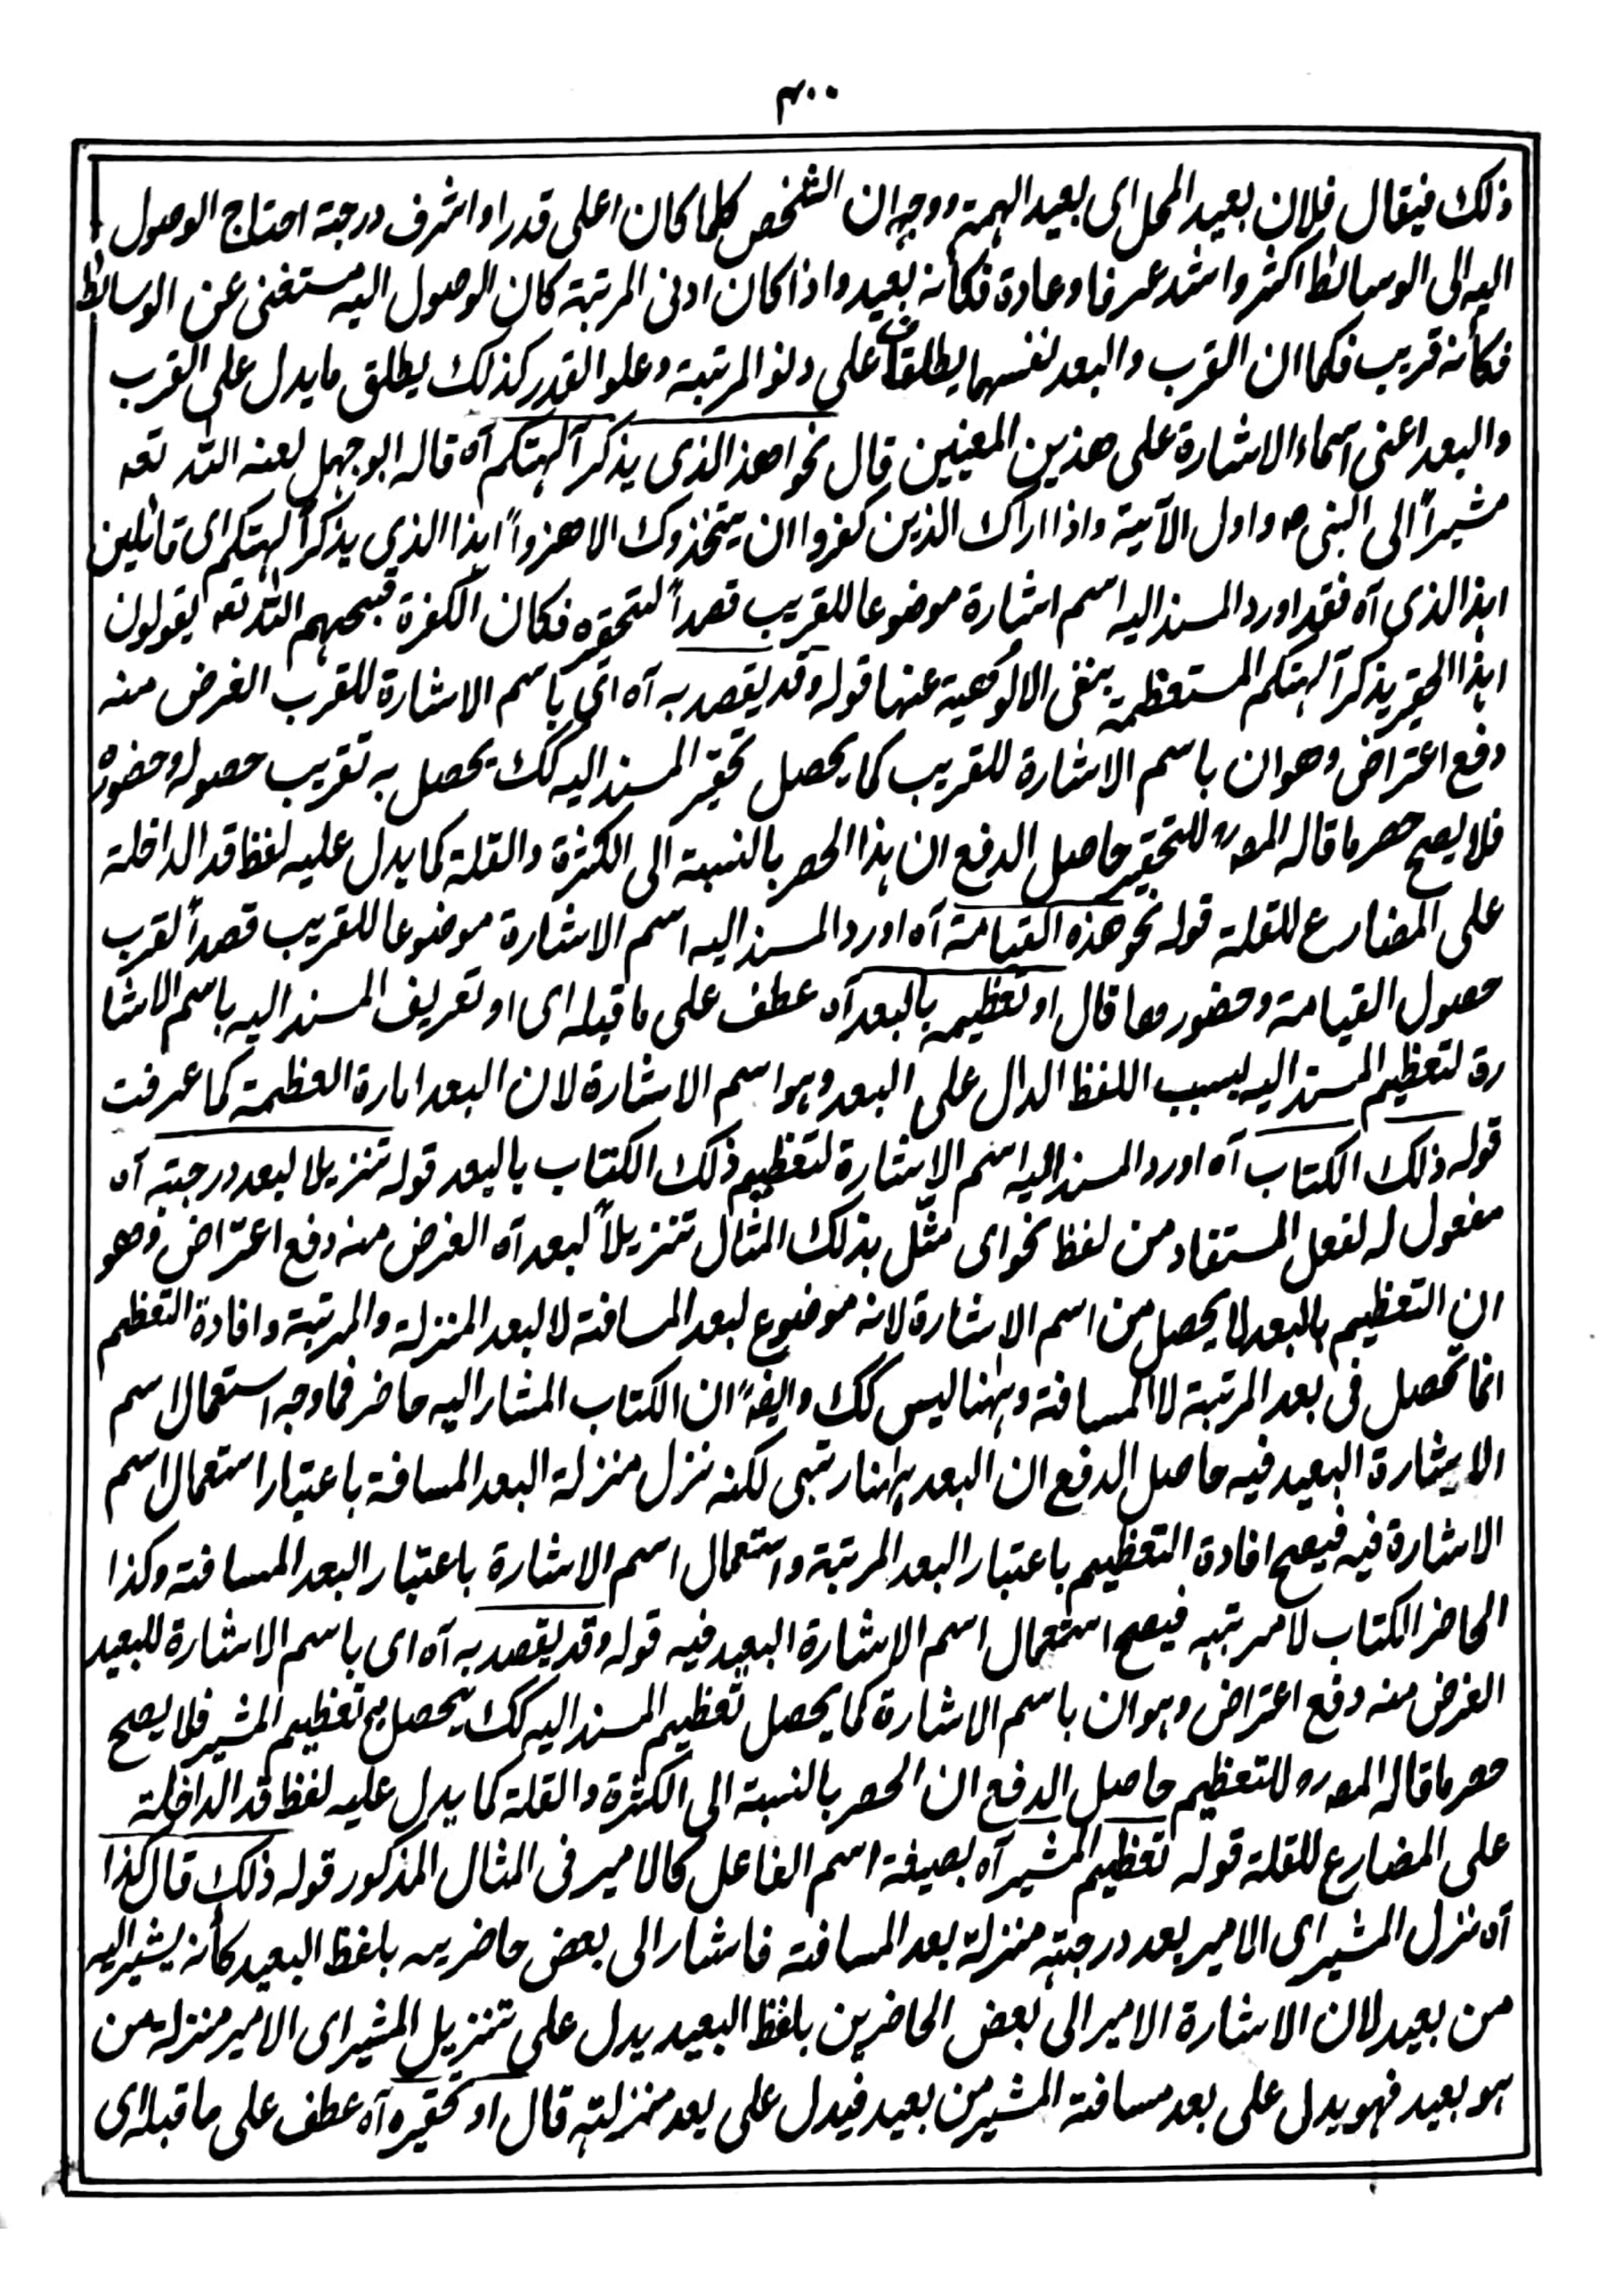 ۴۰۰
ذلك فيقال فلان بعيد المحل اى بعيد الهمة ووجه ان الشخص كلما كان اعلى قدرا واشرف درجة احتاج الوصول
اليه الى الوسائط اكثر واشد عرفا وعادة فكأنه بعيد واذا كان ادنى المرتبة كان الوصول اليه مستغنى عن الوسائط
فكأنه قريب فكما ان القرب والبعد لنفسهما يطلقان على دنو المرتبة وعلو القدر كذلك يطلق ما يدل على القرب
والبعد اعنى اسماء الاشارة على هذين المعنيين قال نحو اهذا الذى يذكر آلهتكم آه قاله ابو جهل لعنه الله تعه
مشيراً الى النبى ص واول الآية واذا اراك الذين كفروا ان يتخذوك الا هزواً اهذا الذى يذكر آلهتكم اى قائلين
اهذا الذى آه فقد اورد المسند اليه اسم اشارة موضوعا للقريب قصداً لتحقيره فكان الكفرة قبحهم الله تعه يقولون
اهذا الحقير يذكر آلهتكم المستعظمة بنفى الالوهية عنها قوله وقد يقصد به آه اى باسم الاشارة للقرب الغرض منه
دفع اعتراض وهو ان باسم الاشارة للقريب كما يحصل تحقير المسند اليه كك يحصل به تقريب حصوله وحضوره
فلا يصح حصر ما قاله المصره للتحقير حاصل الدفع ان هذا الحصر بالنسبة الى الكثرة والقلة كما يدل عليه لفظ قد الداخلة
على المضارع للقلة قوله نحو هذه القيامة آه اورد المسند اليه اسم الاشارة موضوعا للقريب قصداً لقرب
حصول القيامة وحضورها قال او تعظيمه بالبعد آه عطف على ما قبله اى او تعريف المسند اليه باسم الاشا
رة لتعظيم المسند اليه بسبب اللفظ الدال على البعد وهو اسم الاشارة لان البعد امارة العظمة كما عرفت
قوله ذلك الكتاب آه اورد المسند اليه اسم الاشارة لتعظيم ذلك الكتاب بالبعد قوله تنزيلا لبعد درجته آه
مفعول له لفعل المستفاد من لفظ نحو اى مثّل بذلك المثال تنزيلاً لبعد آه الغرض منه دفع اعتراض وهو
ان التعظيم بالبعد لا يحصل من اسم الاشارة لانه موضوع لبعد المسافة لا لبعد المنزلة والمرتبة وافادة التعظيم
انما تحصل فى بعد المرتبة لا المسافة وههنا ليس كك وايضاً ان الكتاب المشار اليه حاضر فما وجه استعمال اسم
الاشارة البعيد فيه حاصل الدفع ان البعد ههنا رتبى لكنه نزل منزلة البعد المسافة باعتبار استعمال اسم
الاشارة فيه فيصح افادة التعظيم باعتبار البعد المرتبة واستعمال اسم الاشارة باعتبار البعد المسافة وكذا
الحاضر الكتاب لا مرتبته فيصح استعمال اسم الاشارة البعيد فيه قوله وقد يقصد به آه اى باسم الاشارة للبعيد
الغرض منه دفع اعتراض وهو ان باسم الاشارة كما يحصل تعظيم المسند اليه كك يحصل به تعظيم المشير فلا يصح
حصر ما قاله المصره للتعظيم حاصل الدفع ان الحصر بالنسبة الى الكثرة والقلة كما يدل عليه لفظ قد الداخلة
على المضارع للقلة قوله تعظيم المشير آه بصيغة اسم الفاعل كالامير فى المثال المذكور قوله ذلك قال كذا
آه نزل المشير اى الامير بعد درجته منزلة بعد المسافة فاشار الى بعض حاضريه بلفظ البعيد كأنه يشير اليه
من بعيد لان الاشارة الامير الى بعض الحاضرين بلفظ البعيد يدل على تنزيل المشير اى الامير منزلة من
هو بعيد فهو يدل على بعد مسافة المشير من بعيد فيدل على بعد منزلته قال او تحقيره آه عطف على ما قبله اى